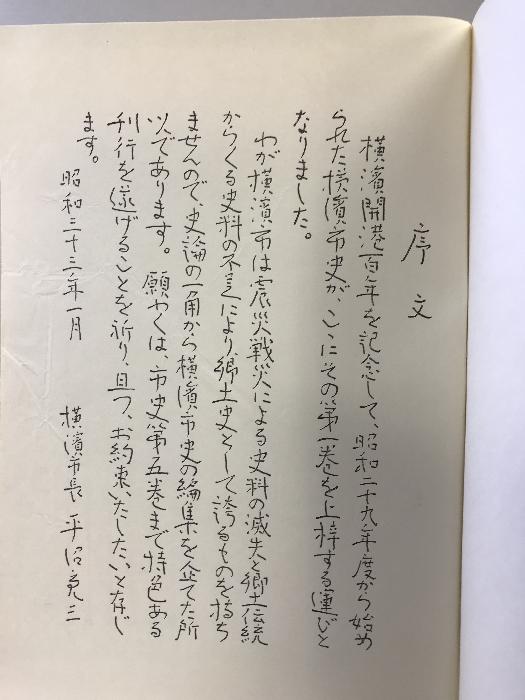 序文
横濱開港百年を記念して、昭和二十九年度から始め
られた横濱市史が、ここにその第一巻を上梓する運びと
なりました。
わが横濱市は震災戦災による史料の滅失と郷土伝統
からくる史料の不足により、郷土史として誇るものを持ち
ませんので、史論の一角から横濱市史の編集を企てた所
以であります。願わくは、市史第五巻まで特色ある
刊行を遂げることを祈り、且つ、お約束いたしたいと存じ
ます。
昭和三十三年一月
横濱市長 平沼亮三